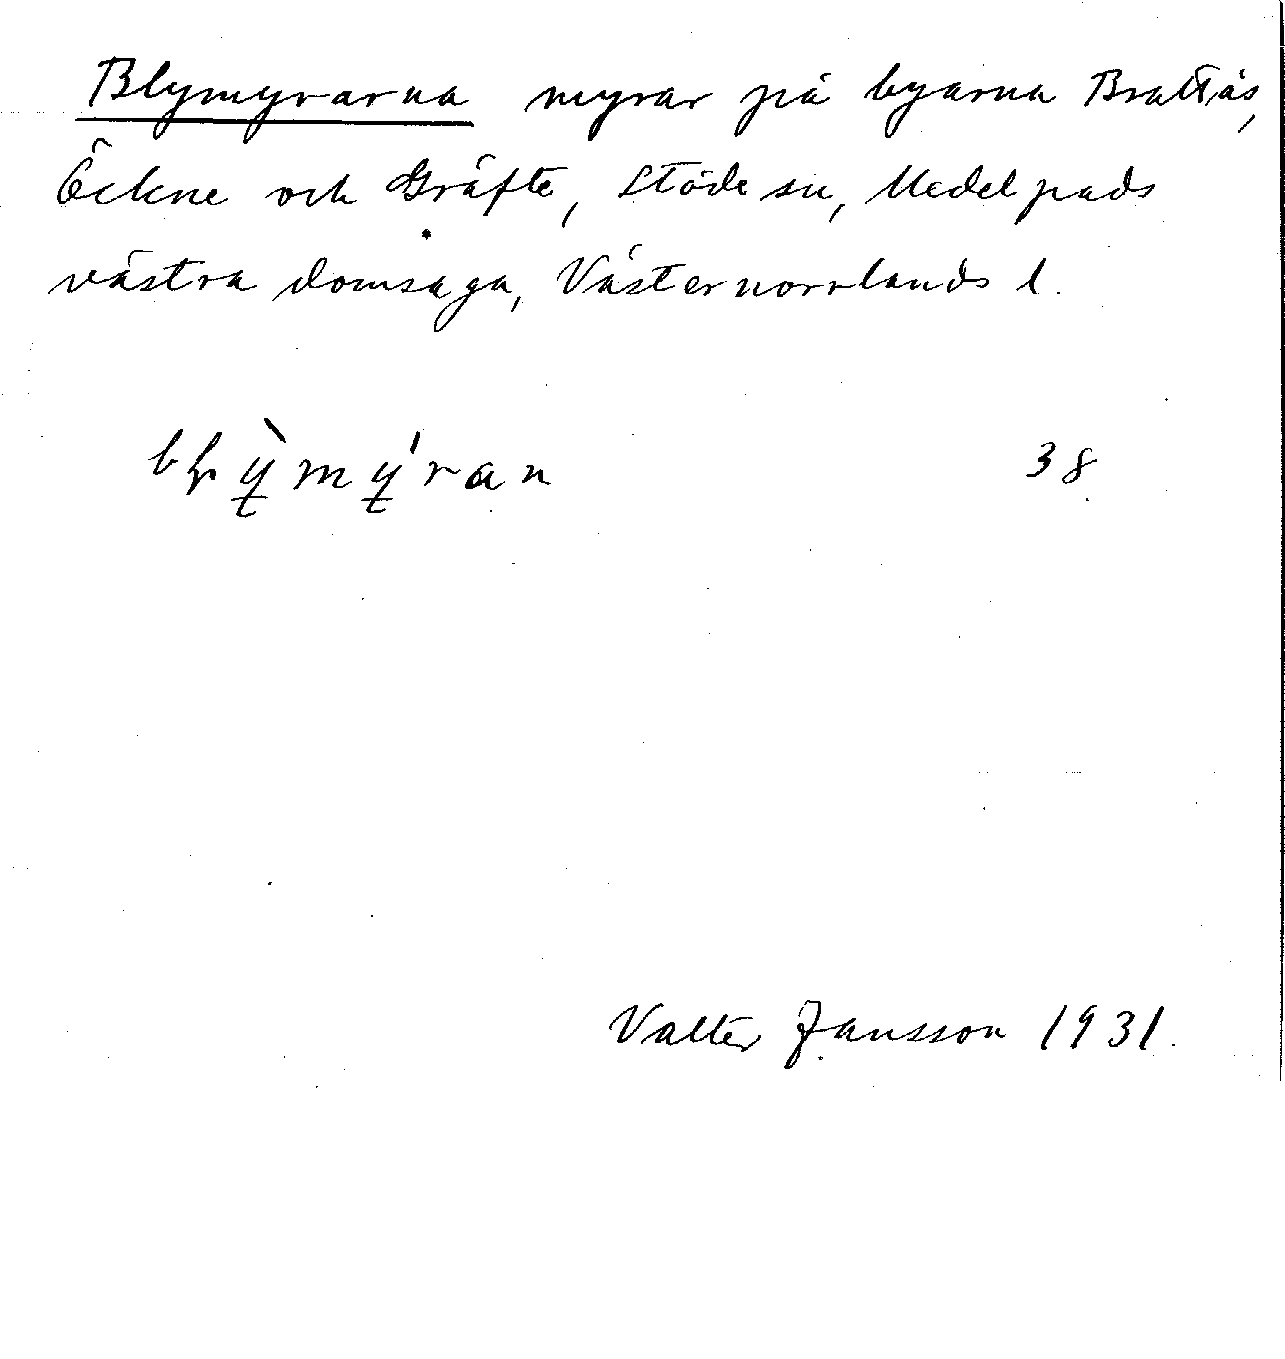 Blymyrarna myrar på byarna Brattås,
Öckne och Gräfte, Stöde sn, Medelpads
västra domsaga, Västernorrlands l.
bḷỳ̠mý̠ran 38
Valter Jansson 1931.